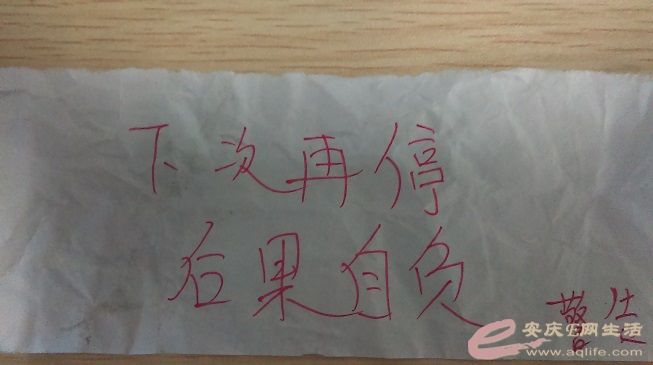 下次再停
后果自负
警告
安庆E网生活
www.aqlife.com